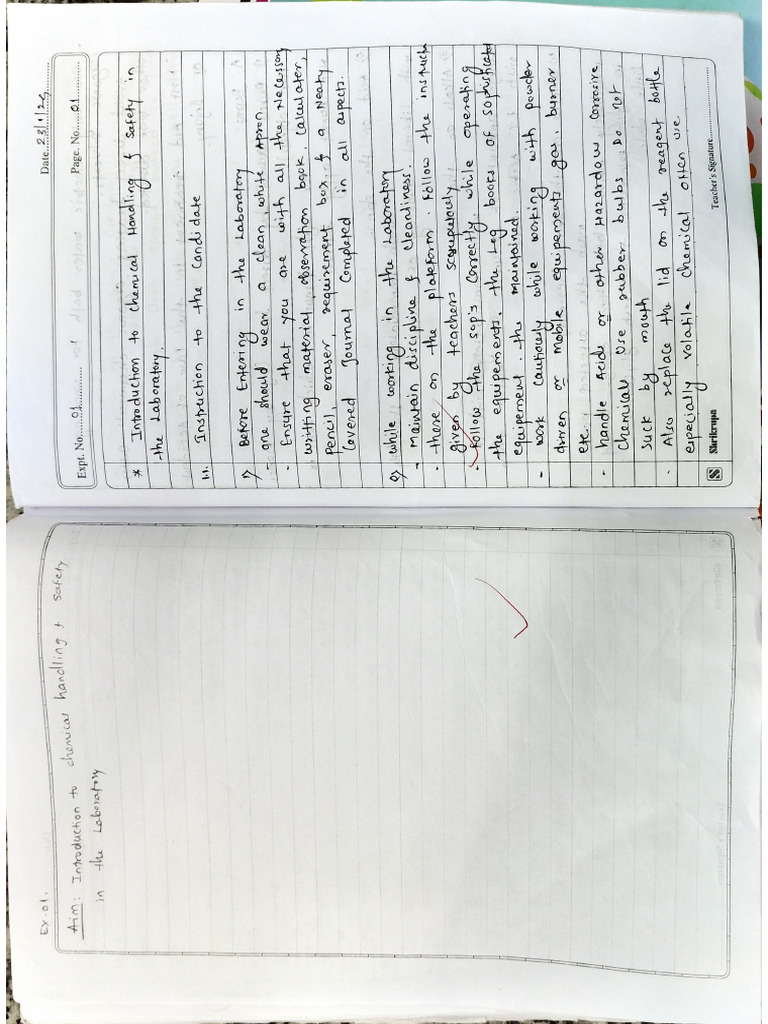 Ex.01.
Aim: Introduction to chemical handling & safety
in the Laboratory
Date. 23/1/25
Expt. No. 01
Page. No. 01
* Introduction to Chemical Handling & Safety in
the Laboratory.
1.1. Instruction to the Candidate
1) Before Entering in the Laboratory
- one should wear a clean, white Apron.
- Ensure that you are with all the Necessary
writting material, observation book, calculater,
Pencil, eraser, requirement box & a Neaty
Covered Journal Completed in all aspects.
2) while working in the Laboratory
- Maintain discipline & cleanliness.
- there on the plateform. Follow the instructi
given by teachers scarupulously
- Follow the sop's correctly while operating
the equipements. the Log books of sophisticated
equipement. the maintained.
- work cautiously while working with powder
driven or mobile equipements, gas, burner
etc.
- handle Acids or other Hazardow corrosive
Chemicals Use rubber bulbs Do not
Suck by mouth
- Also replace the lid on the reagent bottle
especially volatile chemical often use
Shrikrupa
Teacher's Signature